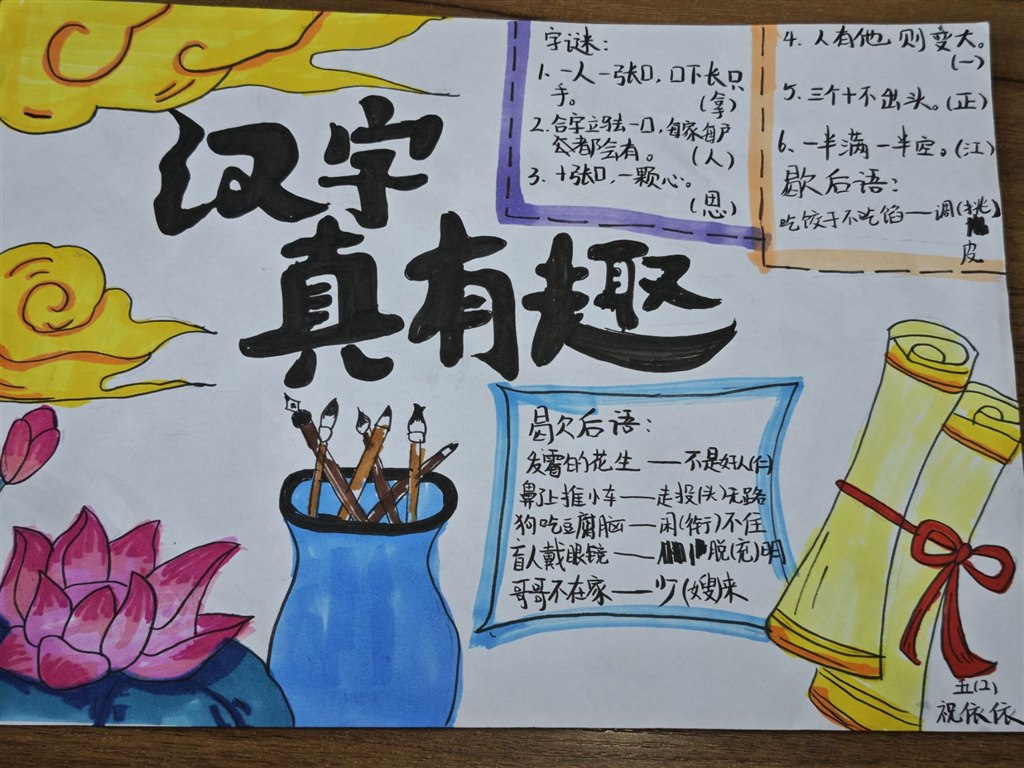 汉字
真有趣
字谜：
1. 一人一张口，口下长只
手。 (拿)
2. 合字立马去一口，自家自户
(人)
3. 十张口，一颗心。
(思)
4. 人有他 则变大。
(一)
5. 三个十不出头。(正)
6. 一半满 一半空。(江)
歇后语：
吃饺子不吃馅——调(挑)
皮
歇后语：
发霉的花生——不是好人(仁)
鼻子上推小车——走投(头)无路
狗吃豆腐脑——闲(衔)不住
盲人戴眼镜——脱(充)明
哥哥不在家——少(嫂)来
五(2)
祝依依